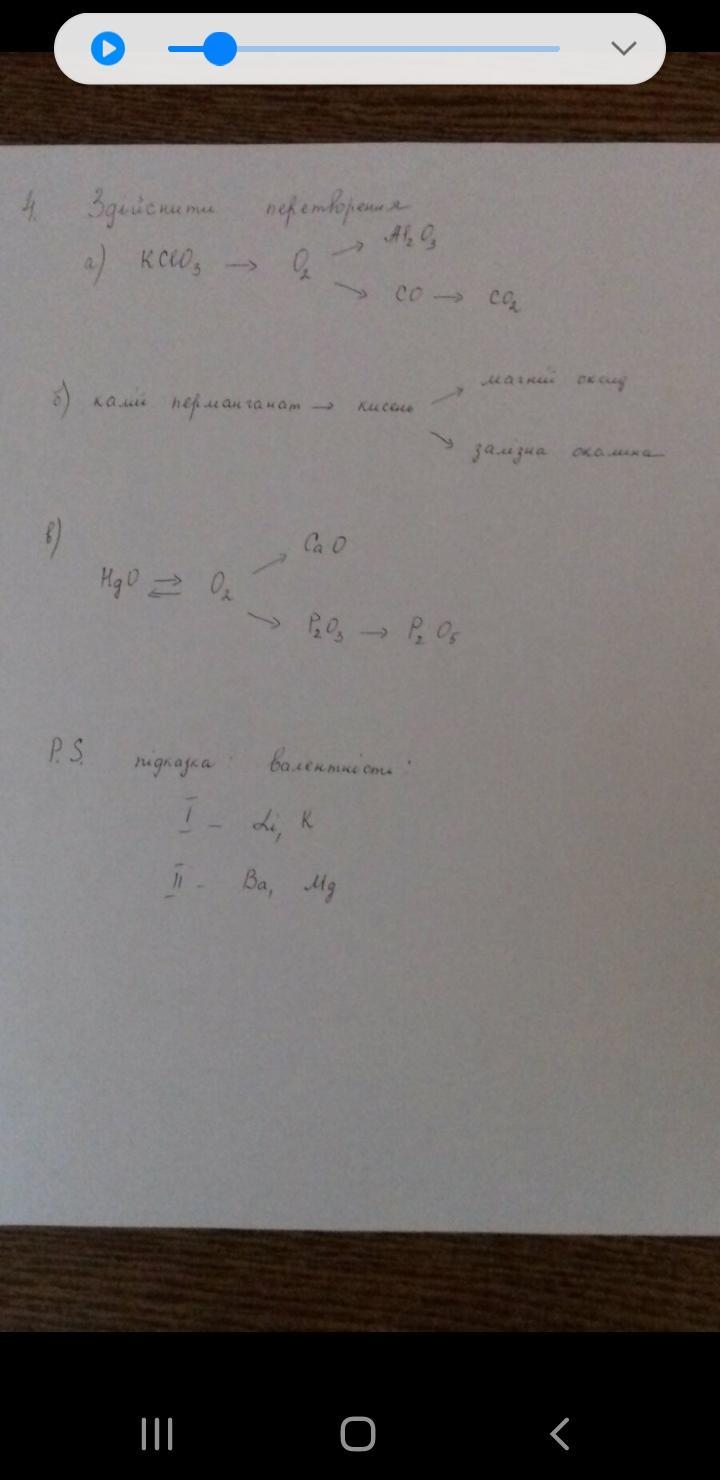 4. Здійснити перетворення
а) KClO3 → O2 → Al2O3
→ CO → CO2
б) калій перманганат → кисень → магній оксид
→ залізна окалина
в)
HgO ⇄ O2 → CaO
→ P2O3 → P2O5
P.S. підказка: валентність:
I - Li, K
II - Ba, Mg